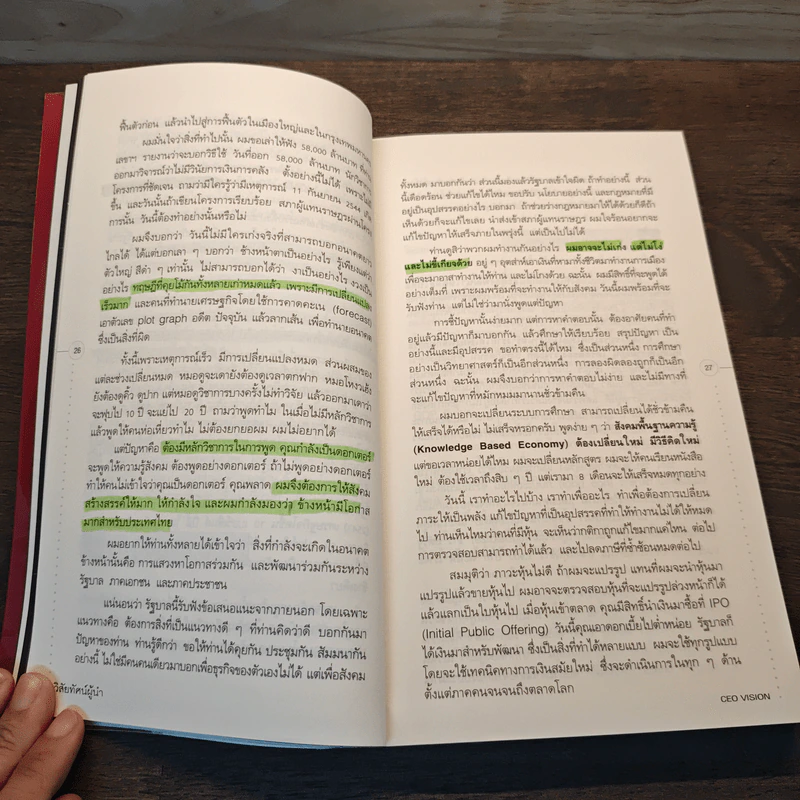 ฟื้นตัวก่อน แล้วนำไปสู่การฟื้นตัวในเมืองใหญ่และในกรุงเทพมหานคร
ผมมั่นใจว่าสิ่งที่ทำไปนั้น ผมขอเล่าให้ฟัง 58,000 ล้านบาท
เลขาฯ รายงานว่าจะบอกวิธีใช้ วันที่ออก 58,000 ล้านบาท นักวิชาการ
ออกมาวิจารณ์ว่าไม่มีวินัยการเงินการคลัง ตั้งอย่างนี้ไม่ได้ เพราะไม่มี
โครงการที่ชัดเจน ถามว่ามีใครรู้ว่ามีเหตุการณ์ 11 กันยายน 2544
ขึ้น และวันนั้นถ้าเขียนโครงการเรียบร้อย สภาผู้แทนราษฎรผ่าน
การนั้น วันนี้ต้องทำอย่างนั้นหรือไม่
ผมจึงบอกว่า วันนี้ไม่มีใครเก่งจริงที่สามารถบอกอนาคตยาว
ไกลได้ ได้แต่บอกเลา ๆ บอกว่า ช้างหน้าตาเป็นอย่างไร รู้เพียงแต่ว่า
ตัวใหญ่ สีดำ ๆ เท่านั้น ไม่สามารถบอกได้ว่า งาเป็นอย่างไร งวงเป็น
อย่างไร ทฤษฎีที่คุยไม่กันทั้งหลายเก่าหมดแล้ว เพราะมีการเปลี่ยนแปลง
เร็วมาก และคนที่ทำนายเศรษฐกิจโดยใช้การคาดคะเน (forecast)
เอาตัวเลข plot graph อดีต ปัจจุบัน แล้วลากเส้น เพื่อทำนายอนาคต
ซึ่งเป็นสิ่งที่ผิด
ทั้งนี้เพราะเหตุการณ์เร็ว มีการเปลี่ยนแปลงหมด ส่วนผสมของ
แต่ละช่วงเปลี่ยนหมด หมอดูจะเดายังต้องดูเวลาตกฟาก หมอโหงวเฮ้ง
ยังต้องดูคิ้ว ดูปาก แต่หมอดูวิชาการบางครั้งไม่ทำวิจัย แล้วออกมาเดาว่า
จะฟุบไป 10 ปี จะแย่ไป 20 ปี ถามว่าพูดทำไม ในเมื่อไม่มีหลักวิชาการ
แล้วพูดให้คนห่อเหี่ยวทำไม ไม่ต้องยกยอผม ผมไม่อยากได้
แต่ปัญหาคือ ต้องมีหลักวิชาการในการพูด คุณกำลังเป็นดอกเตอร์
จะพูดให้ความรู้สังคม ต้องพูดอย่างดอกเตอร์ ถ้าไม่พูดอย่างดอกเตอร์
ทำให้คนไม่เข้าใจว่าคุณเป็นดอกเตอร์ คุณพลาด ผมจึงต้องการให้สังคม
สร้างสรรค์ให้มาก ให้กำลังใจ และผมกำลังมองว่า ข้างหน้ามีโอกาส
มากสำหรับประเทศไทย
ผมอยากให้ท่านทั้งหลายได้เข้าใจว่า สิ่งที่กำลังจะเกิดในอนาคต
ข้างหน้านั้นคือ การแสวงหาโอกาสร่วมกัน และพัฒนาร่วมกันระหว่าง
รัฐบาล ภาคเอกชน และภาคประชาชน
แน่นอนว่า รัฐบาลนี้รับฟังข้อเสนอแนะจากภายนอก โดยเฉพาะ
แนวทางคือ ต้องการสิ่งที่เป็นแนวทางดี ๆ ที่ท่านคิดว่าดี บอกกันมา
ปัญหาของท่าน ท่านรู้ดีกว่า ขอให้ท่านได้คุยกัน ประชุมกัน สัมมนากัน
อย่างนี้ ไม่ใช่มีคนคนเดียวมาบอกเพื่อธุรกิจของตัวเองไม่ได้ แต่เพื่อสังคม
26
วิสัยทัศน์ผู้นำ
ทั้งหมด มาบอกกันว่า ส่วนนี้มองแล้วรัฐบาลเข้าใจผิด ถ้าทำอย่างนี้ ส่วน
นี้เดือดร้อน ช่วยแก้ไขได้ไหม ขอปรับ นโยบายอย่างนี้ และกฎหมายที่มี
อยู่เป็นอุปสรรคอย่างไร บอกมา ถ้าช่วยร่างกฎหมายมาให้ได้ด้วยก็ดีถ้า
เห็นด้วยก็จะแก้ไขเลย นำส่งเข้าสภาผู้แทนราษฎร ผมใจร้อนอยากจะ
แก้ไขปัญหาให้เสร็จภายในพรุ่งนี้ แต่เป็นไปไม่ได้
ท่านดูสิว่าพวกผมทำงานกันอย่างไร ผมอาจจะไม่เก่ง แต่ไม่โง่
และไม่ขี้เกียจด้วย อยู่ ๆ อุตส่าห์เอาเงินที่หามาทั้งชีวิตมาทำงานการเมือง
เพื่อจะมาอาสาทำงานให้ท่าน และไม่โกงด้วย ฉะนั้น ผมมีสิทธิที่จะพูดได้
อย่างเต็มที่ เพราะผมพร้อมที่จะทำงานให้กับสังคม วันนี้ผมพร้อมที่จะ
รับฟังท่าน แต่ไม่ใช่ว่ามานั่งพูดแต่ปัญหา
การชี้ปัญหานั้นง่ายมาก แต่การหาคำตอบนั้น ต้องอาศัยคนที่ทำ
อยู่แล้วมีปัญหาก็มาบอกกัน แล้วศึกษาให้เรียบร้อย สรุปปัญหา เป็น
อย่างนี้และมีอุปสรรค ขอทำตรงนี้ได้ไหม ซึ่งเป็นส่วนหนึ่ง การศึกษา
อย่างเป็นวิทยาศาสตร์ก็เป็นอีกส่วนหนึ่ง การลองผิดลองถูกก็เป็นอีก
ส่วนหนึ่ง ฉะนั้น ผมจึงบอกว่าการหาคำตอบไม่ง่าย และไม่มีทางที่
จะแก้ไขปัญหาที่หมักหมมมานานชั่วข้ามคืน
ผมบอกจะเปลี่ยนระบบการศึกษา สามารถเปลี่ยนได้ชั่วข้ามคืน
ให้เสร็จได้หรือไม่ ไม่เสร็จหรอกครับ พูดง่าย ๆ ว่า สังคมพื้นฐานความรู้
(Knowledge Based Economy) ต้องเปลี่ยนใหม่ มีวิธีคิดใหม่
แต่ขอเวลาหน่อยได้ไหม ผมจะเปลี่ยนหลักสูตร ผมจะให้คนเรียนหนังสือ
ใหม่ ต้องใช้เวลาถึงสิบ ๆ ปี แต่เรามา 8 เดือนจะให้เสร็จหมดทุกอย่าง
วันนี้ เราทำอะไรไปบ้าง เราทำเพื่ออะไร ทำเพื่อต้องการเปลี่ยน
ภาระให้เป็นพลัง แก้ไขปัญหาที่เป็นอุปสรรคที่ทำให้ทำงานไม่ได้ให้หมด
ไป ท่านเห็นไหมว่าคนที่มีหุ้น จะเห็นว่ากติกาถูกแก้ไขมากแค่ไหน ต่อไป
การตรวจสอบสามารถทำได้แล้ว และไปลดภาษีที่ซ้ำซ้อนหมดต่อไป
สมมุติว่า ภาวะหุ้นไม่ดี ถ้าผมจะแปรรูป แทนที่ผมจะนำหุ้นมา
แปรรูปแล้วขายหุ้นไป ผมอาจจะตรวจสอบหุ้นที่จะแปรรูปล่วงหน้าก็ได้
แล้วแลกเป็นใบหุ้นไป เมื่อหุ้นเข้าตลาด คุณมีสิทธิ์นำเงินมาซื้อที่ IPO
(Initial Public Offering) วันนี้คุณเอาดอกเบี้ยไปต่ำหน่อย รัฐบาลก็
ได้เงินมาสำหรับพัฒนา ซึ่งเป็นสิ่งที่ทำได้หลายแบบ ผมจะใช้ทุกรูปแบบ
โดยจะใช้เทคนิคทางการเงินสมัยใหม่ ซึ่งจะดำเนินการในทุก ๆ ด้าน
ตั้งแต่ภาคคนจนจนถึงตลาดโลก
27
CEO VISION